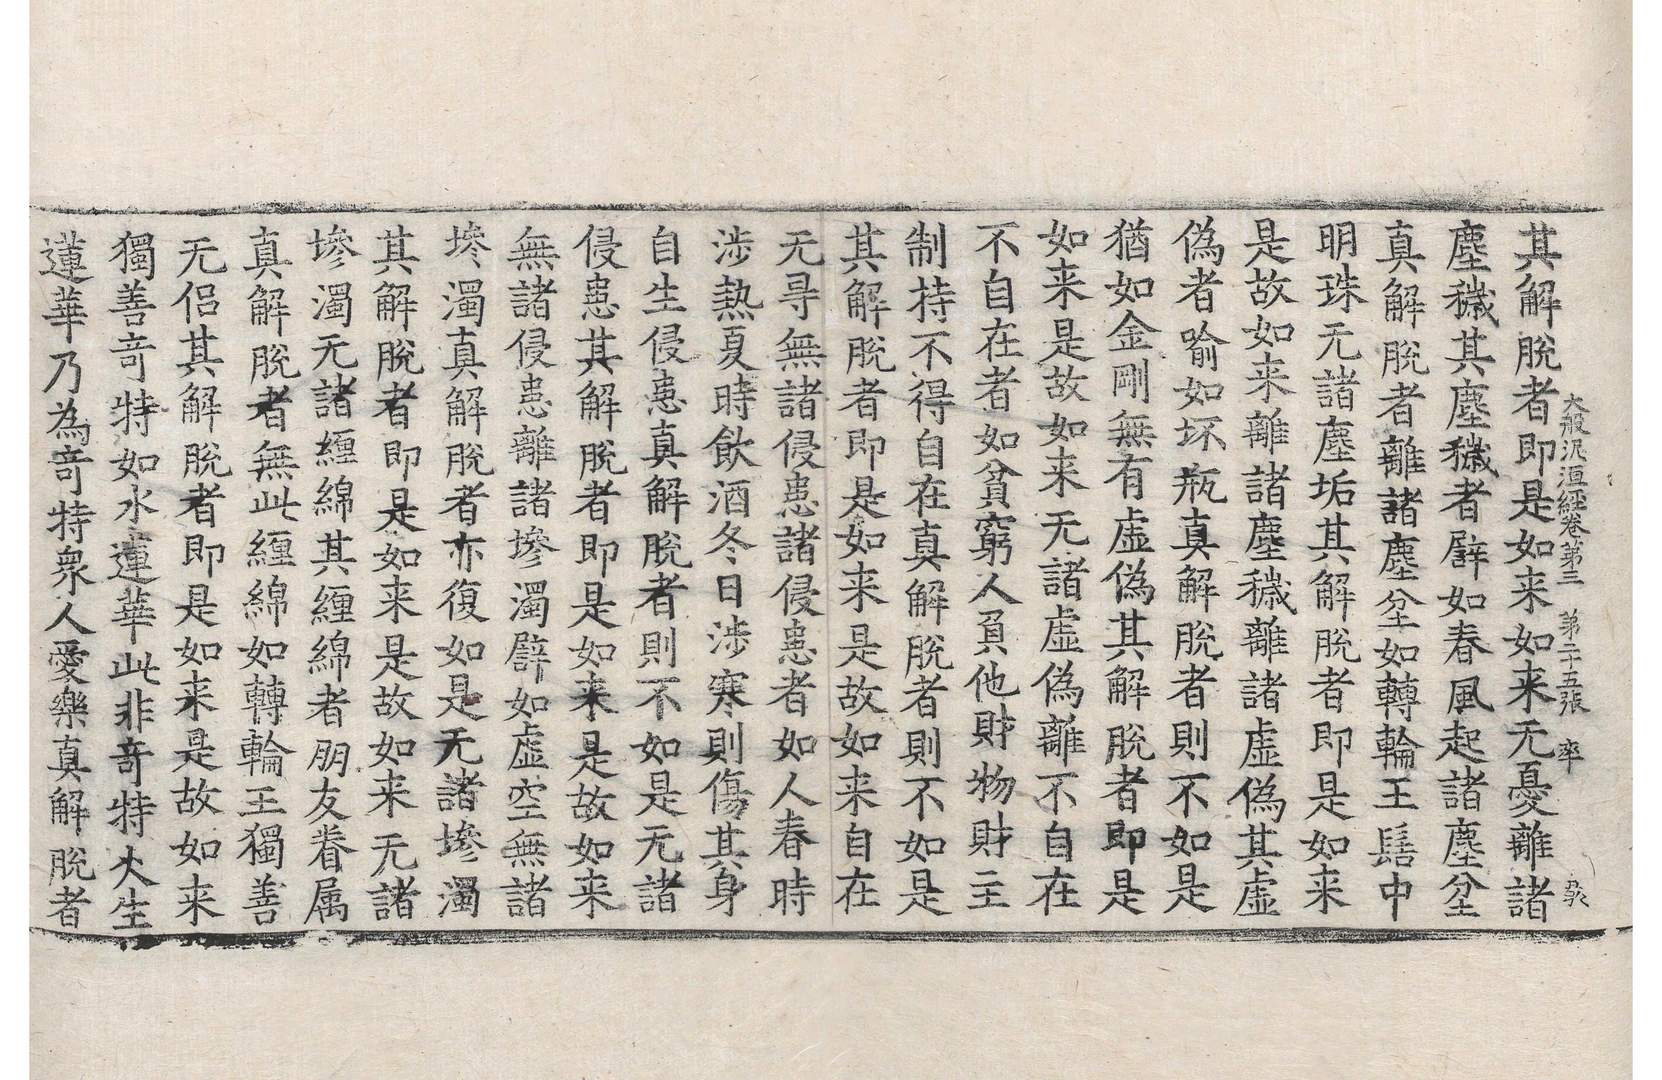 大般泥洹経卷第三　第二十五張　率
其解脫者即是如来如来无憂離諸
塵穢其塵穢者譬如春風起諸塵坌
真解脫者離諸塵坌如轉輪王髻中
明珠无諸塵垢其解脫者即是如来
是故如来離諸塵穢離諸虛偽其虛
偽者喻如坏瓶真解脫者則不如是
猶如金剛無有虛偽其解脫者即是
如来是故如来无諸虛偽離不自在
不自在者如貧窮人負他財物財主
制持不得自在真解脫者則不如是
其解脫者即是如来是故如来自在
无㝵無諸侵患諸侵患者如人春時
涉熱夏時飲酒冬日涉寒則傷其身
自生侵患真解脫者則不如是无諸
侵患其解脫者即是如来是故如来
無諸侵患離諸墋濁譬如虛空無諸
墋濁真解脫者亦復如是无諸墋濁
其解脫者即是如来是故如来无諸
墋濁无諸纏綿其纏綿者朋友眷属
真解脫者無此纏綿如轉輪王獨善
无侶其解脫者即是如来是故如来
獨善竒特如水蓮華此非竒特火生
蓮華乃為竒特衆人愛樂真解脫者